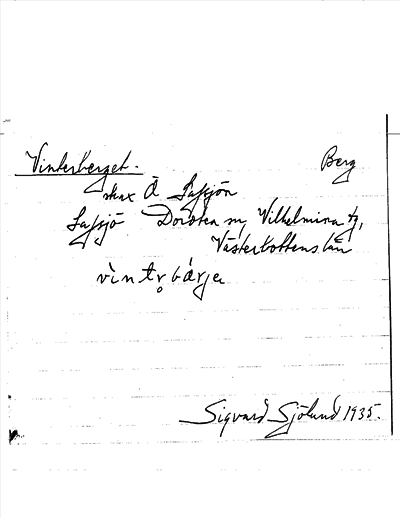 Vinterberget. Berg
strax Ö Lafsjön
Lafsjö Dorotea sn, Vilhelmina tg,
Västerbottens län
vìntr̥bárje
Sigvard Sjölund 1935.